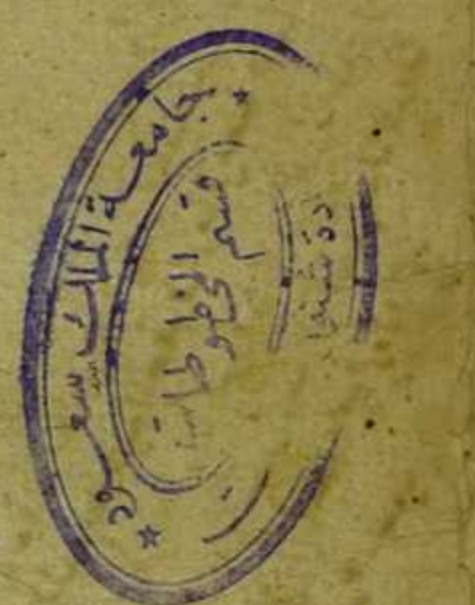 جامعة الملك سعود
قسم المخطوطات